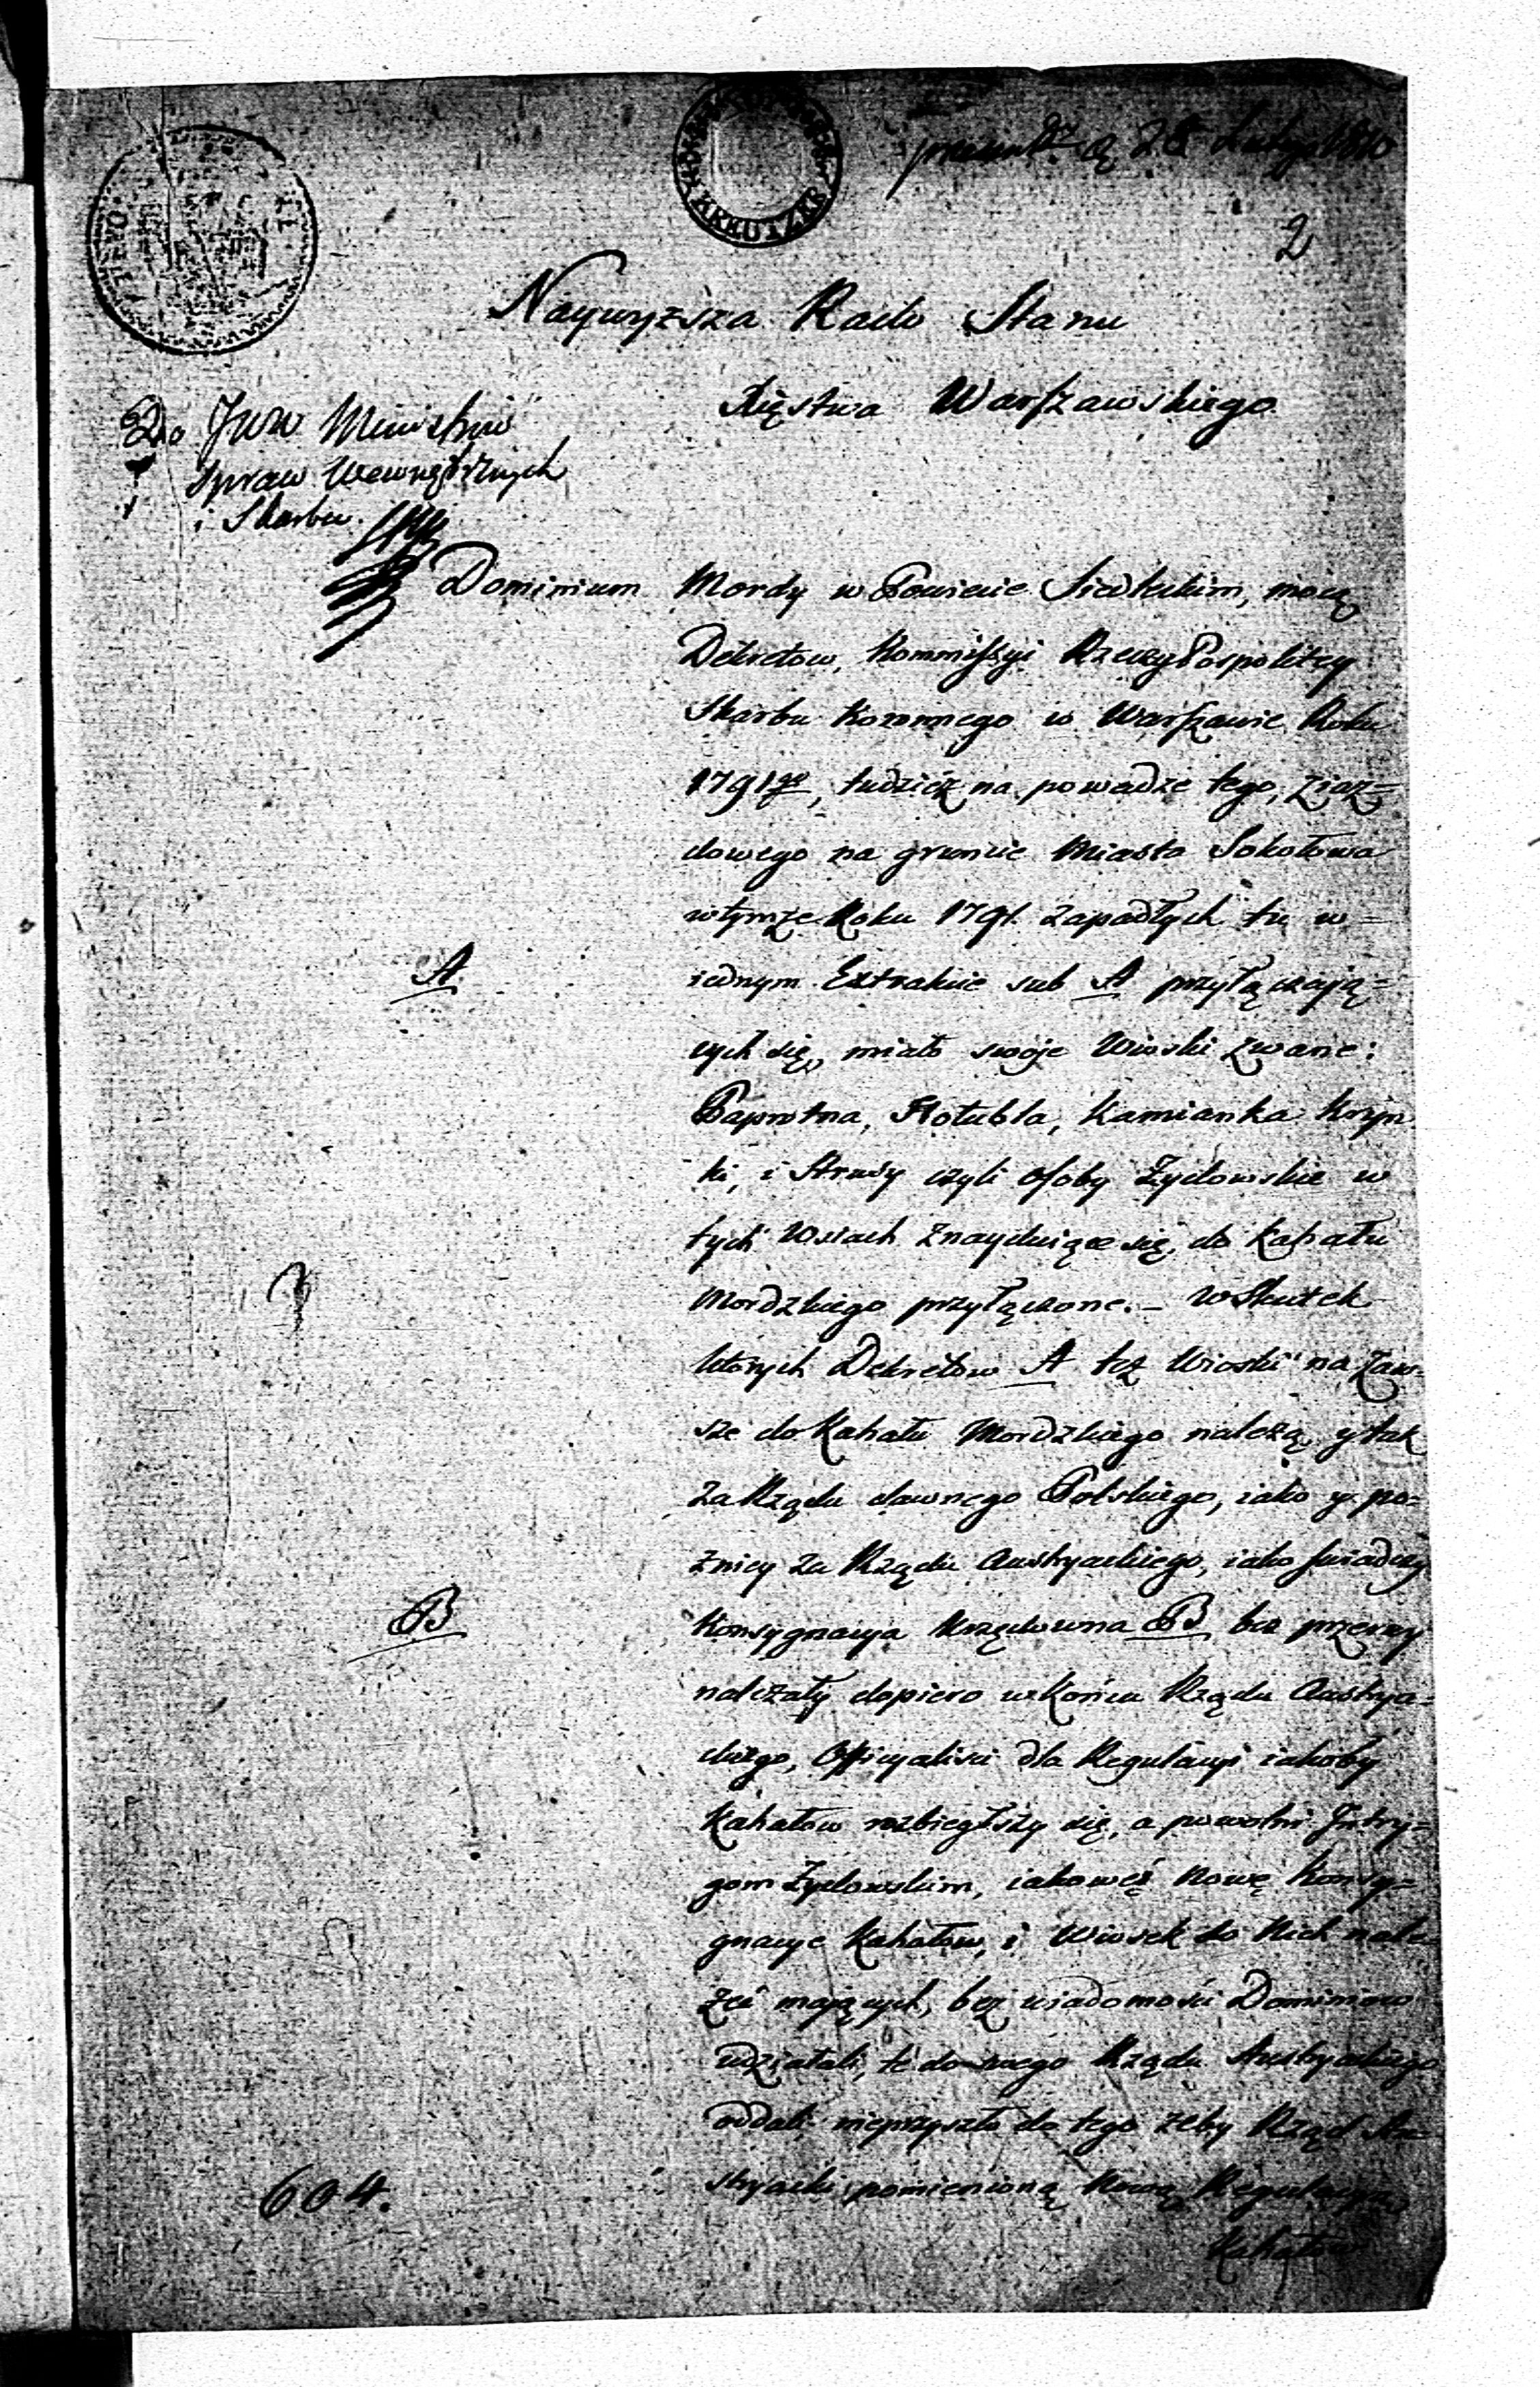 28 Lutego 1810
2
KREUTZER
Naywyzsza Rado Stanu
Xięstwa Warszawskiego
Do Jww Ministrów
Spraw Wewnętrznych
i Skarbu.
Dominium Mordy w Powiecie Siedleckim, mocą
Dekretow, Kommissyi Rzeczy Pospolitey
Skarbu Koronnego w Warszawie Roku
1791go, tudzież na powadze tego, zjaz=
dowego na gruncie Miasta Sokołowa
w tymże Roku 1791. zapadłych tu w=
iednym Extrakcie sub A przyłączają=
A
cych się, miało swoje Wioski zwane:
Paprotna, Hołubla, Kamianka Krzyn
ki, i Strusy czyli osoby Żydowskie w
tych Wsiach znayduiące się, do Kahału
Mordzkiego przyłączone. – W Skutek
których Dekretów A też Wioski na zaw=
sze do Kahału Mordzkiego należą, y tak
za Rządu dawnego Polskiego, iako y po=
zniey za Rządu Austryackiego, iako świadczy
Konsygnacya Urzędowna B bez przerwy
B
należały dopiero w końcu Rządu Austrya=
ckiego, Officyalisci dla Regulacyi iakoby
Kahałow rozbiegłszy się, a powolni Intry=
gom Żydowskim, iakowęś Nowę Konsy=
gnacye Kahałow, i Wiosek do Nich nale
żeć mających, bez wiadomości Dominiow
udziałali, te do swego Rządu Austryackiego
oddali, nieprzyszło do tego żeby Rząd Au=
stryacki pomienioną Nową Regulacyą
604.
Kahałow